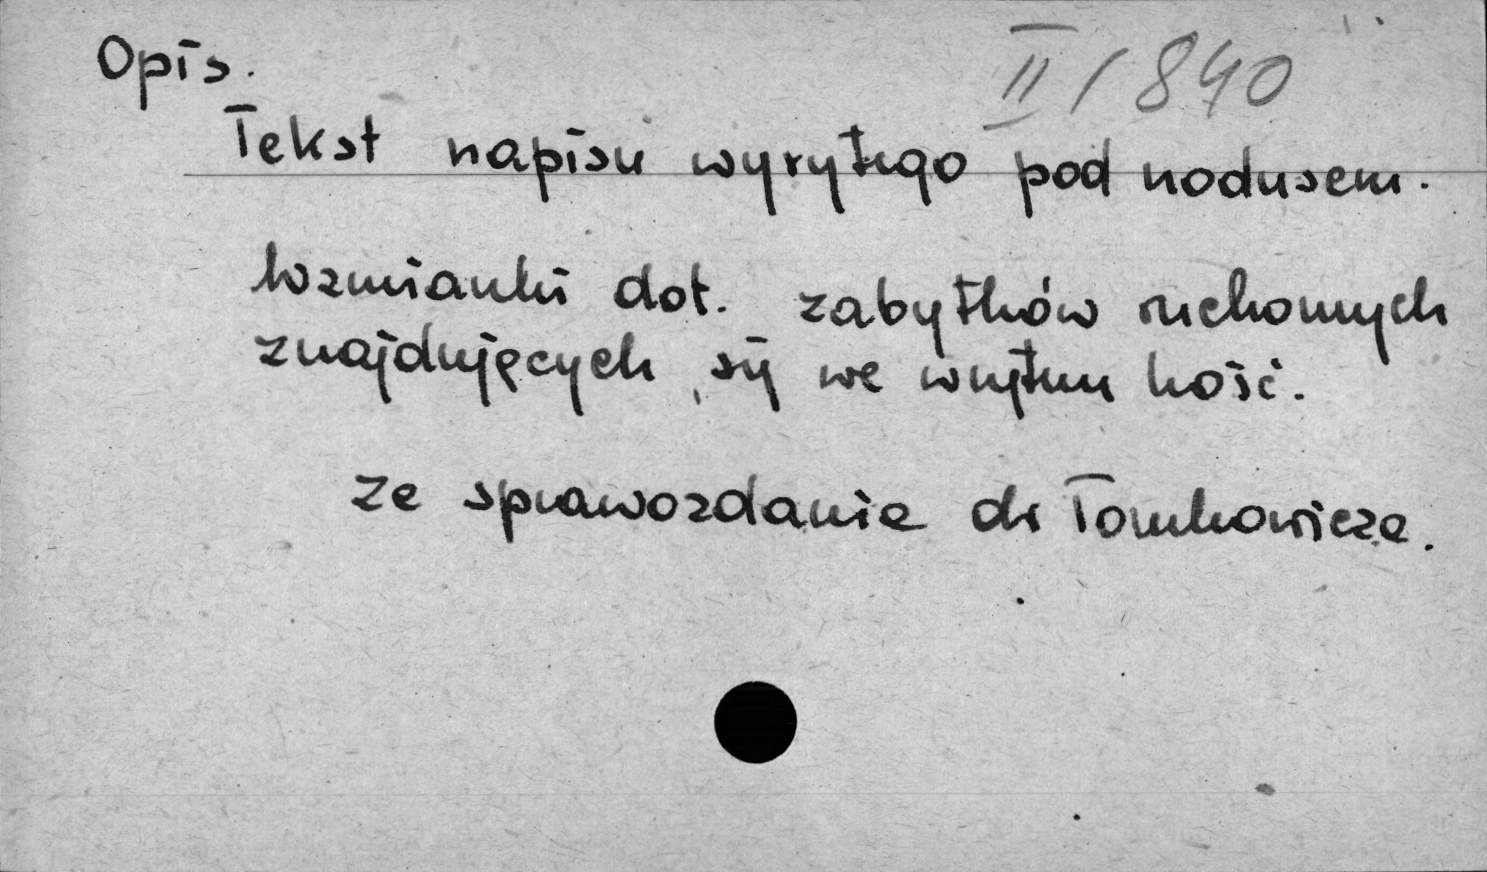 Opis.
II/840
Tekst napisu wyrytego pod nodusem.
Wzmianki dot. zabytków ruchomych
znajdujących się we wnętrzu kość.
Ze sprawozdania dr Tomkowicza.